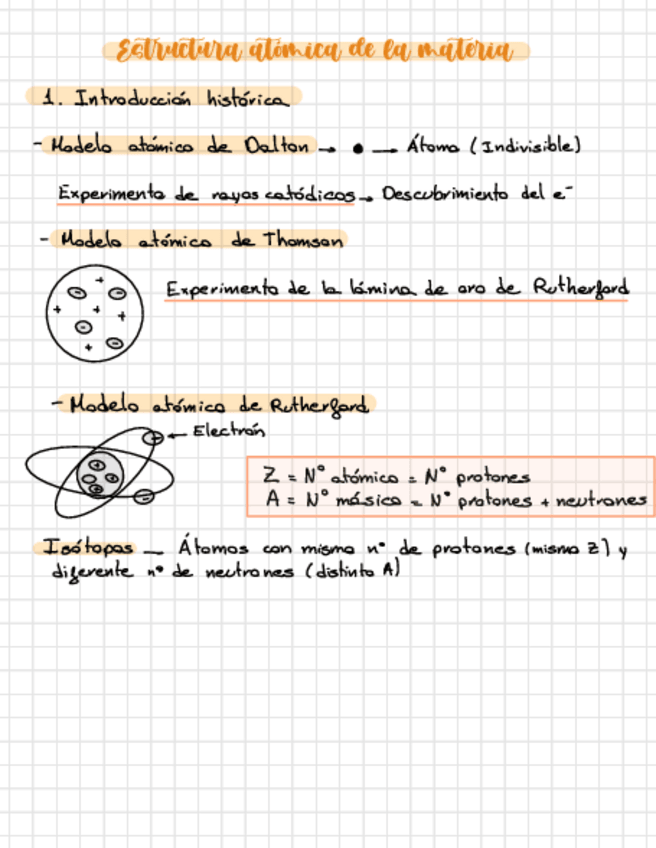 Estructura atómica de la materia
1. Introducción histórica
- Modelo atómico de Dalton → • — Átomo (Indivisible)
Experimento de rayos catódicos → Descubrimiento del e⁻
- Modelo atómico de Thomson
Experimento de la lámina de oro de Rutherford
- Modelo atómico de Rutherford
← Electrón
Z = Nº atómico = Nº protones
A = Nº másico = Nº protones + neutrones
Isótopos — Átomos con mismo nº de protones (mismo Z) y
diferente nº de neutrones (distinto A)